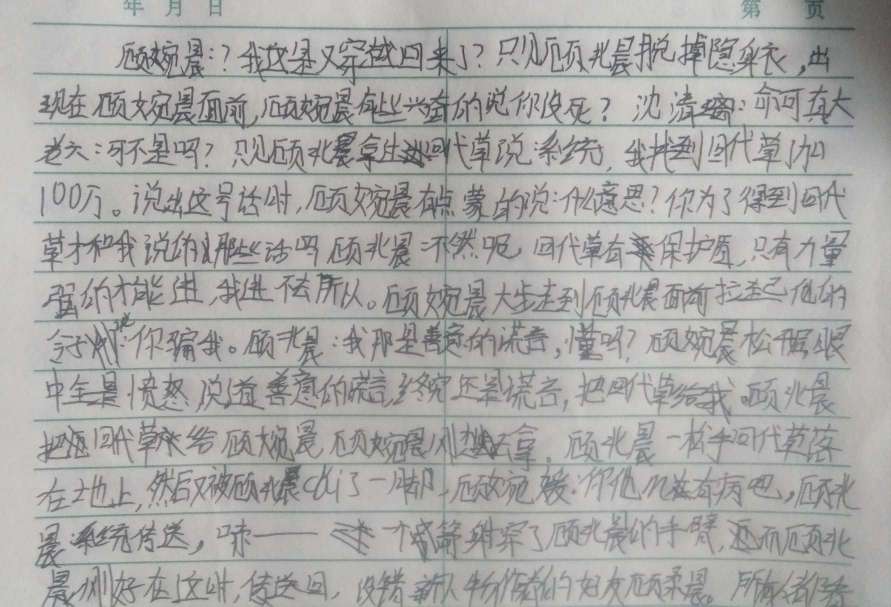 年 月 日 第 页
顾婉晨:?我这是又穿越回来了?只见顾北晨脱掉隐身衣,出
现在顾婉晨面前,顾婉晨有些兴奋的说你没死?沈清璃:命可真大
老六:可不是吗?只见顾北晨拿出回代草说系统,我找到回代草了加
100万。说出这号话时,顾婉晨有点蒙的说:什么意思?你为了得到回代
草才和我说的那些话吗 顾北晨:不然呢,回代草有保护层,只有力量
强的才能进,我进不去所以。顾婉晨大步走到顾北晨面前拉起他的
说:你骗我。顾北晨:我那是善意的谎言,懂吗?顾婉晨松开眼
中全是愤怒,说道善意的谎言终究还是谎言,把回代草给我。顾北晨
把回代草给顾婉晨,顾婉晨刚想去拿。顾北晨一松手回代草落
在土地上,然后又被顾北晨chi了一脚,顾婉媛:你他有病吧,顾北
晨:系统传送,咻——一个箭射穿了顾北晨的手臂,还而顾北
晨刚好在这时,传送回,没错的妇女顾柔晨。所有